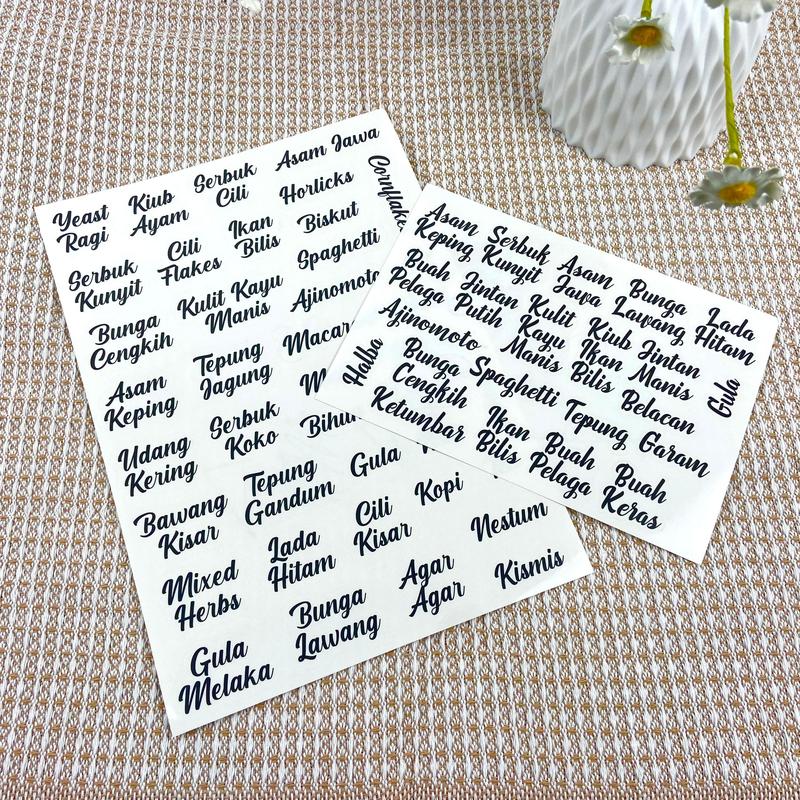 Yeast
Ragi
Kiub
Ayam
Serbuk
Cili
Asam Jawa
Cornflakes
Serbuk
Kunyit
Cili
Flakes
Ikan
Bilis
Horlicks
Biskut
Bunga
Cengkih
Kulit Kayu
Manis
Spaghetti
Ajinomoto
Asam
Keping
Tepung
Jagung
Udang
Kering
Serbuk
Koko
Bihun
Bawang
Kisar
Tepung
Gandum
Gula
Mixed
Herbs
Lada
Hitam
Cili
Kisar
Kopi
Nestum
Gula
Melaka
Bunga
Lawang
Agar
Agar
Kismis
Asam
Keping
Serbuk
Kunyit
Asam
Jawa
Bunga
Lawang
Lada
Hitam
Buah
Pelaga
Jintan
Putih
Kulit
Kayu
Manis
Kiub
Ikan
Bilis
Jintan
Manis
Ajinomoto
Halba
Bunga
Cengkih
Spaghetti
Belacan
Gula
Ketumbar
Ikan
Bilis
Tepung
Garam
Buah
Pelaga
Buah
Keras